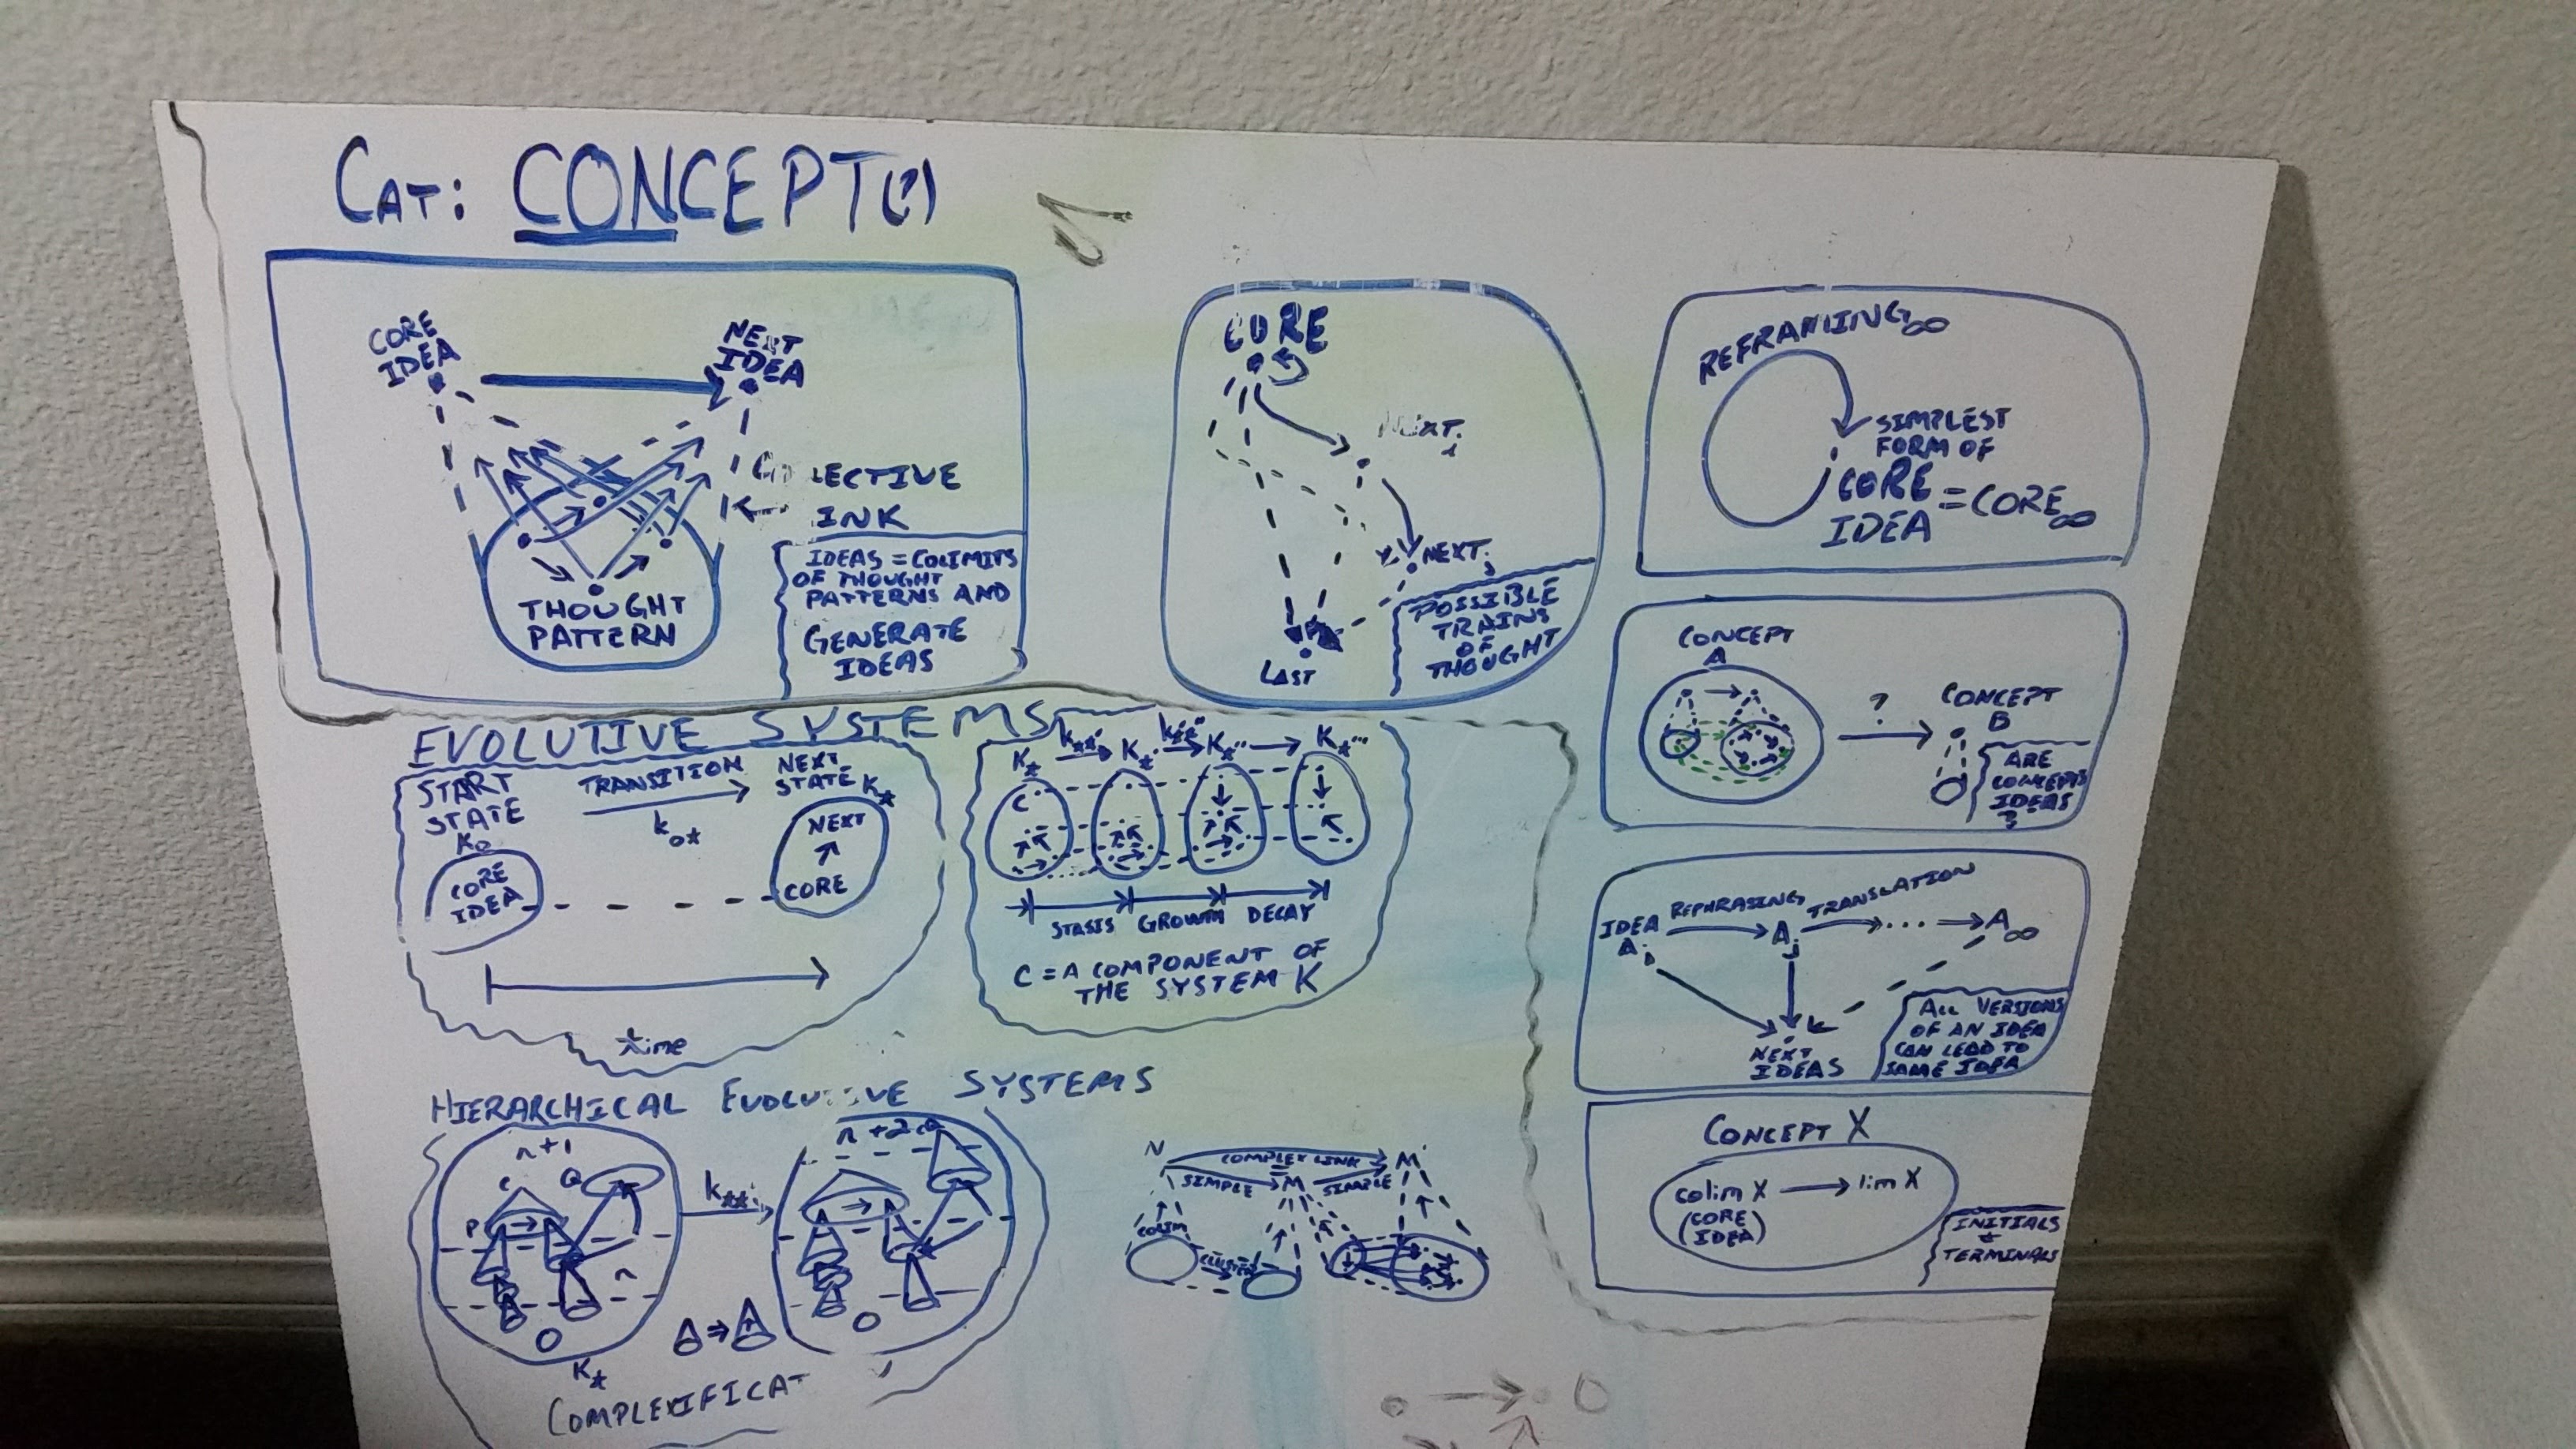 CAT: CONCEPT(?)
CORE
IDEA
NEXT
IDEA
LECTIVE
INK
THOUGHT
PATTERN
IDEAS = COLIMITS
OF THOUGHT
PATTERNS AND
GENERATE
IDEAS
CORE
NEXT i
NEXT j
LAST
POSSIBLE
TRAINS
OF
THOUGHT
REFRAMING ∞
SIMPLEST
FORM OF
CORE
IDEA = CORE ∞
CONCEPT
A
?
CONCEPT
B
ARE
CONCEPTS
IDEAS
?
IDEA
A i
REPHRASING
A j
TRANSLATION
... → A ∞
NEXT
IDEAS
ALL VERSIONS
OF AN IDEA
CAN LEAD TO
SAME IDEA
CONCEPT X
colim X → lim X
(CORE
IDEA)
INITIALS
+
TERMINALS
EVOLUTIVE SYSTEMS
START
STATE
K0
CORE
IDEA
TRANSITION
k0*
NEXT
STATE K*
NEXT
↑
CORE
time
K* k**' K*' k*'*'' K*'' → K*'''
C
STASIS GROWTH DECAY
C = A COMPONENT OF
THE SYSTEM K
HIERARCHICAL EVOLU VE SYSTEMS
n+1
C
Q
P
n
O
K*
k**'
n+2
O
COMPLEXIFICAT
N COMPLEX LINK M'
SIMPLE M SIMPLE
COLIM
CLUSTER